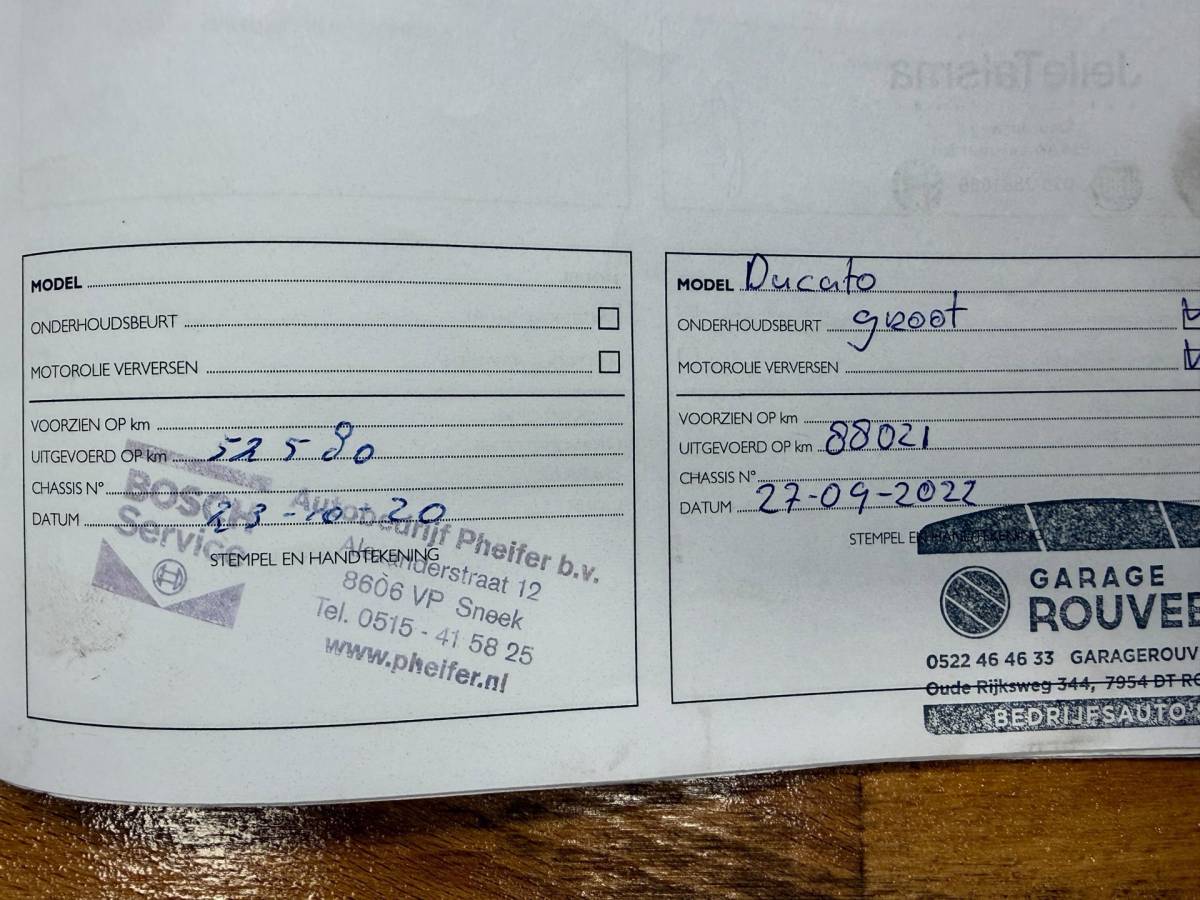 MODEL
ONDERHOUDSBEURT
MOTOROLIE VERVERSEN
VOORZIEN OP km
UITGEVOERD OP km 52 590
CHASSIS N°
DATUM 23-10-20
STEMPEL EN HANDTEKENING
BOSCH
Service
Autobedrijf Pheifer b.v.
Alexanderstraat 12
8606 VP Sneek
Tel. 0515 - 41 58 25
www.pheifer.nl
MODEL Ducato
ONDERHOUDSBEURT groot
MOTOROLIE VERVERSEN
VOORZIEN OP km
UITGEVOERD OP km 88021
CHASSIS N°
DATUM 27-09-2022
STEMPEL EN HANDTEKENING
GARAGE
ROUVEE
0522 46 46 33 GARAGEROUV
Oude Rijksweg 344, 7954 DT RO
BEDRIJFSAUTO